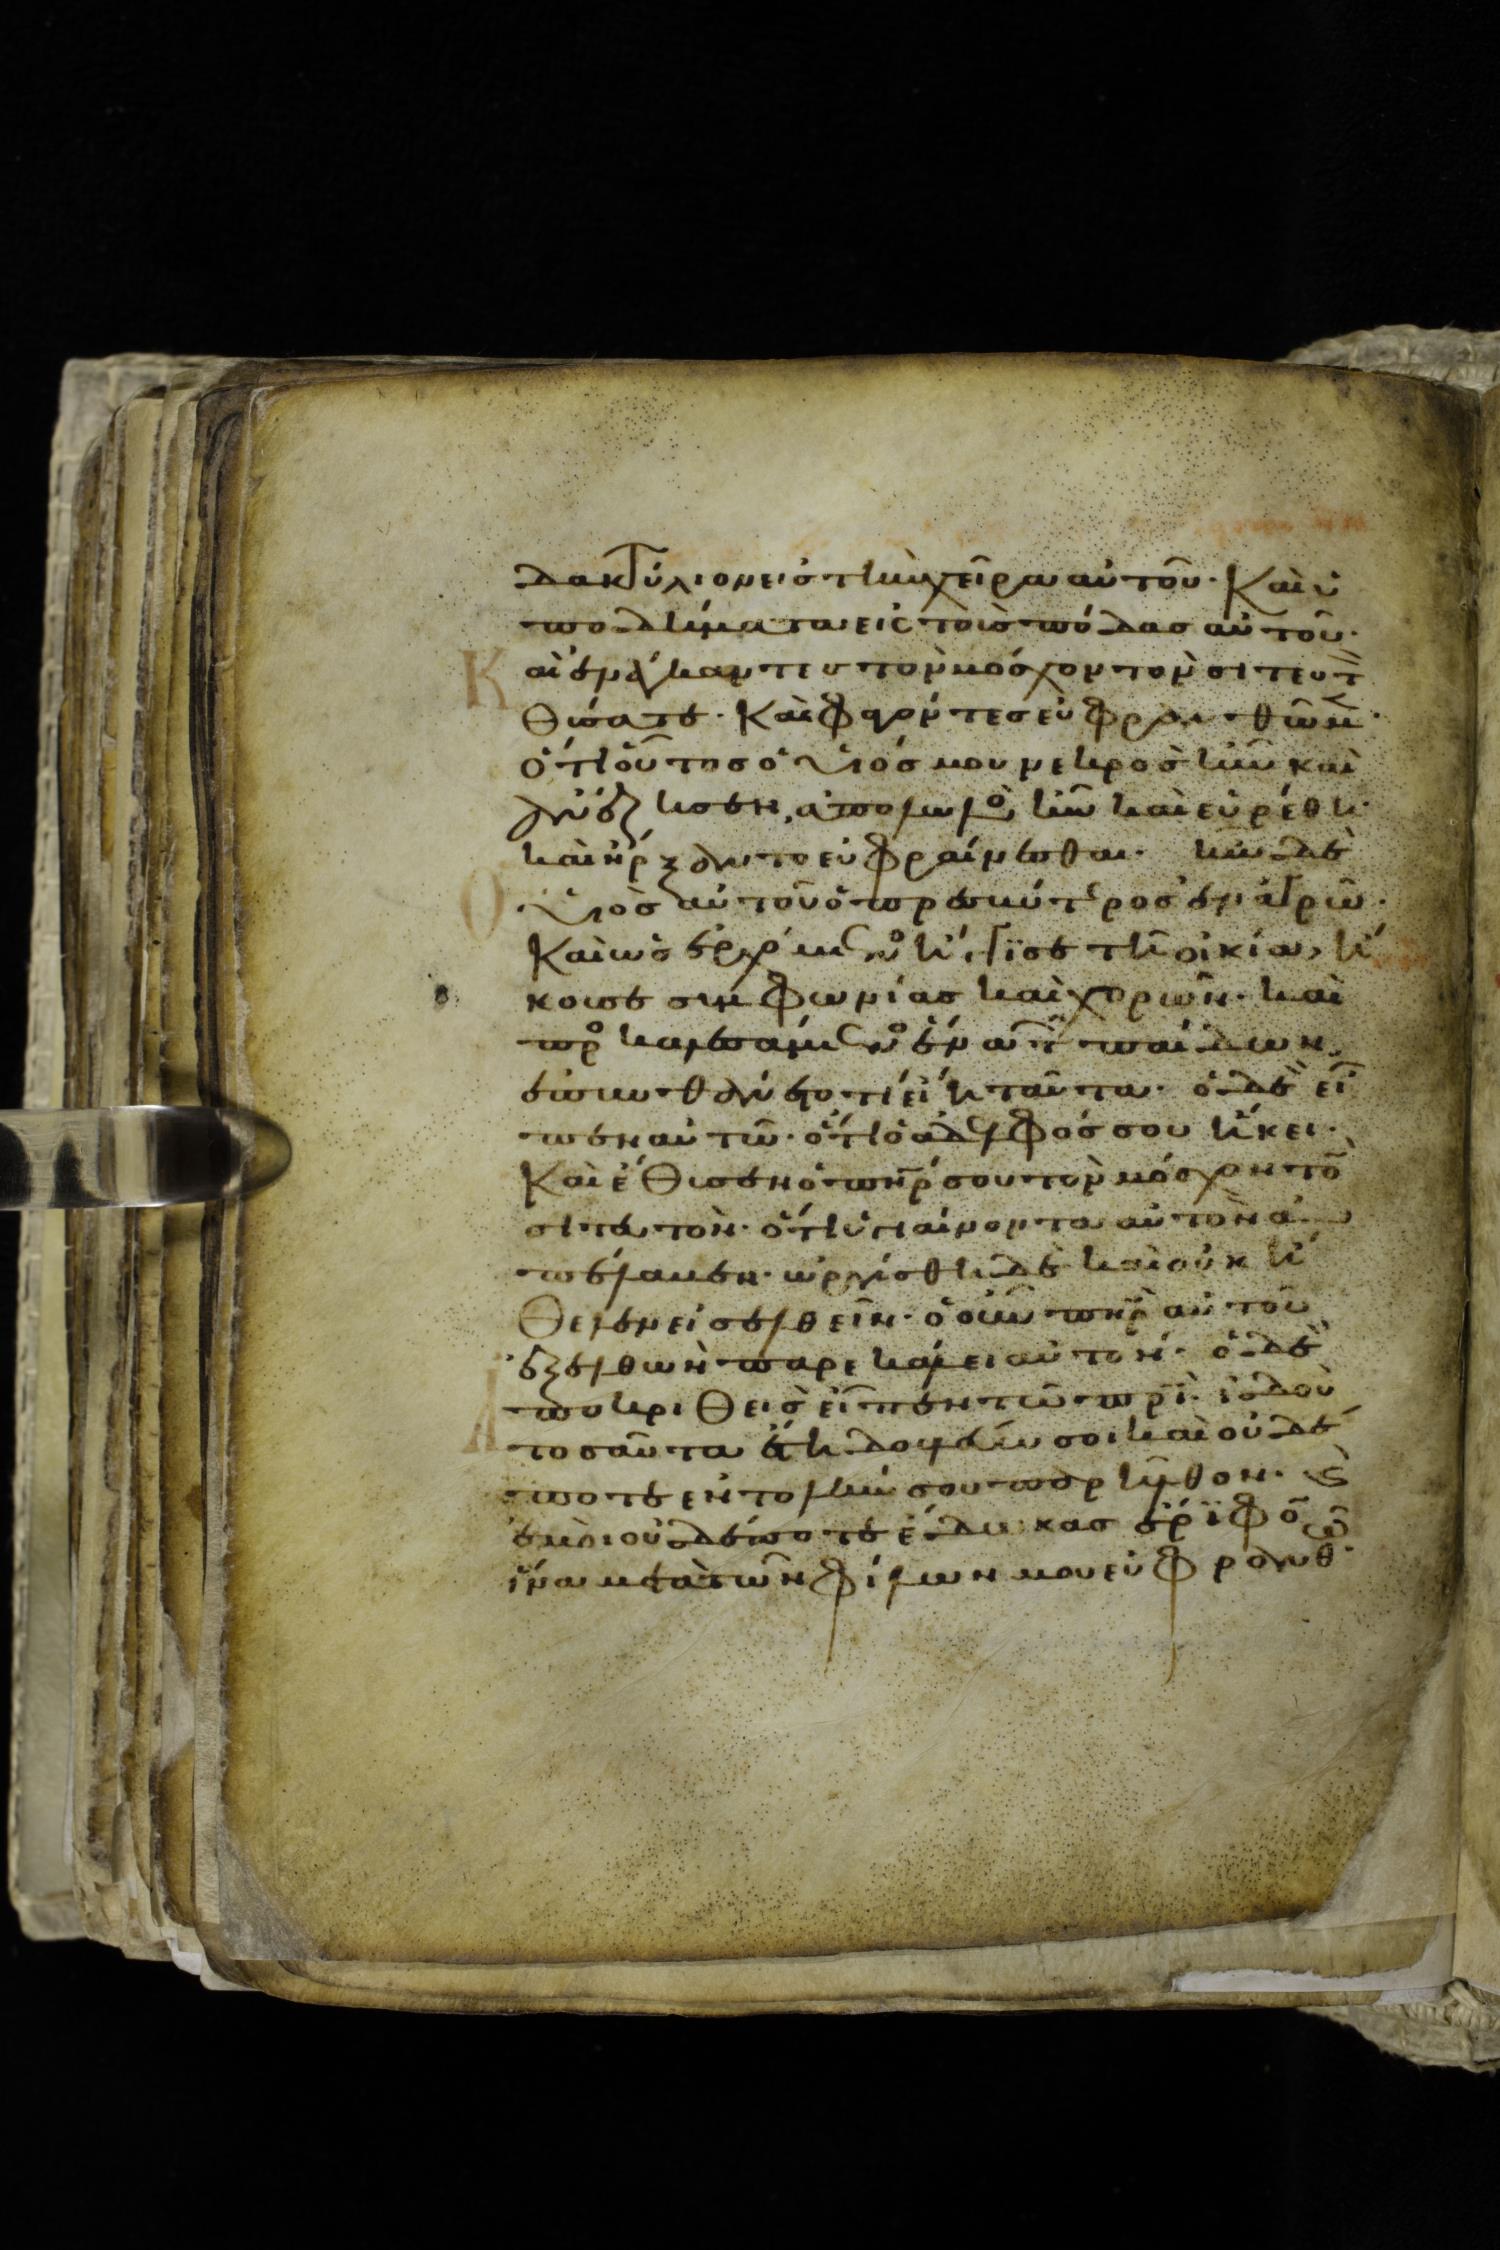 δακτύλιον εἰς τὴν χεῖρα αὐτοῦ· Καὶ ὑ
ποδήματα εἰς τοὺς πόδας αὐτοῦ·
Καὶ ἐνέγκαντες τὸν μόσχον τὸν σιτευτ
θύσατε· Καὶ φαγόντες εὐφρανθῶμ·
ὅτι οὗτος ὁ υἱός μου νεκρὸς ἦν καὶ
ἀνέζησεν, ἀπολωλὸ ἦν καὶ εὑρέθη·
καὶ ἤρξαντο εὐφραίνεσθαι· ἦν δὲ
Ο υἱὸς αὐτοῦ ὁ πρεσβύτερος ἐν ἀγρῶ·
Καὶ ὡς ἐρχόμενος ἤγγισε τῆ οἰκία, ἤ
κουσε συμφωνίας καὶ χορῶν· καὶ
προσκαλεσάμενος ἕνα τ παίδων
ἐπυνθάνετο τί εἴη ταῦτα· ὁ δὲ εἶ
πεν αὐτῶ· ὅτι ὁ ἀδελφός σου ἥκει·
Καὶ ἔθυσεν ὁ πηρ σου τὸν μόσχον τὸ
σιτευτὸν· ὅτι ὑγιαίνοντα αὐτὸν ἀ
πέλαβεν· ὠργίσθη δὲ καὶ οὐκ ἤ
θελεν εἰσελθεῖν· ὁ οὖν πηρ αὐτοῦ
ἐξελθὼν παρεκάλει αὐτόν· ὁ δὲ
Ἀποκριθεὶς εἶπεν τῶ πρι· ἰδοὺ
τοσαῦτα ἔτη δουλεύω σοι καὶ οὐδέ
ποτε ἐντολήν σου παρῆλθον· Καὶ
ἐμοὶ οὐδέποτε ἔδωκας ἔριφο
ἵνα μετὰ τῶν φίλων μου εὐφρανθῶ·